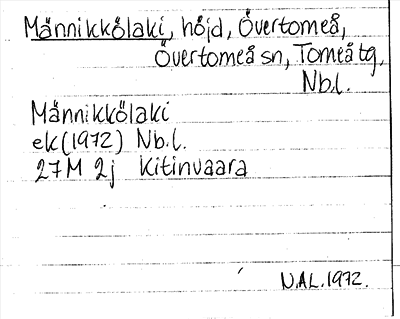 Männikkölaki, höjd, Övertorneå,
Övertorneå sn, Torneå tg,
Nb.l.
Männikkölaki
ek(1972) Nb.l.
27M 2j Kitinvaara
N.AL.1972.